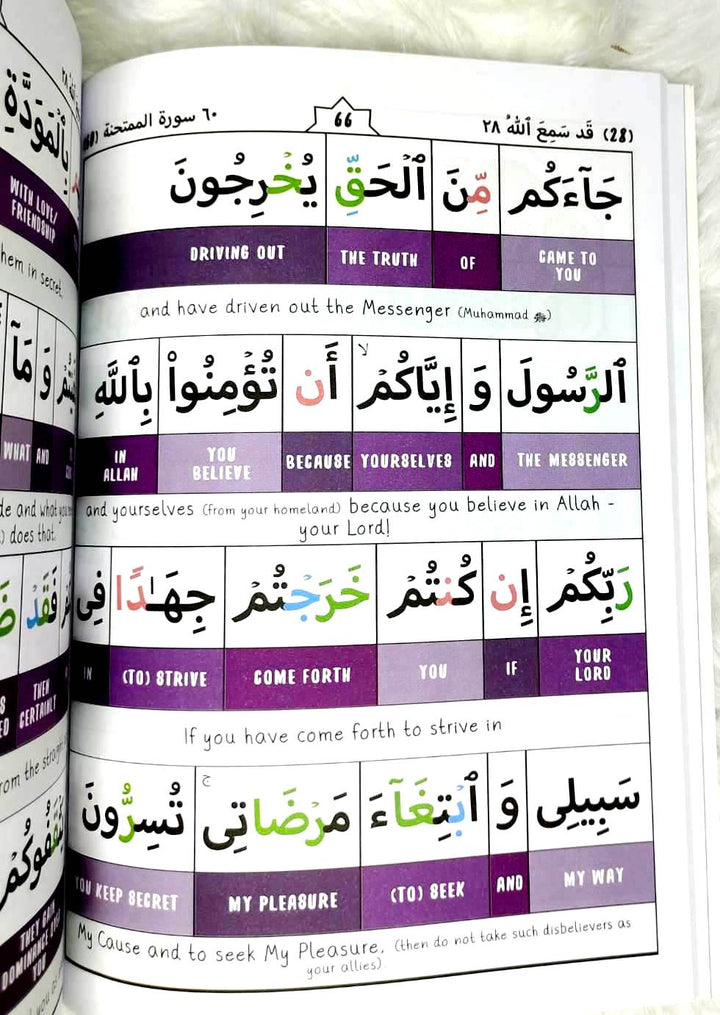 (28) قَد سَمِعَ ٱللهُ ٢٨
66
٦٠ سورة الممتحنة
جَآءَكُم مِّنَ ٱلْحَقِّ يُخْرِجُونَ
CAME TO YOU OF THE TRUTH DRIVING OUT
and have driven out the Messenger (Muhammad ﷺ)
ٱلرَّسُولَ وَ إِيَّاكُمْ ۙ أَن تُؤْمِنُوا۟ بِٱللَّهِ
THE MESSENGER AND YOURSELVES BECAUSE YOU BELIEVE IN ALLAH
and yourselves (from your homeland) because you believe in Allah -
your Lord!
رَبِّكُمْ إِن كُنتُمْ خَرَجْتُمْ جِهَـٰدًا فِى
YOUR LORD IF YOU COME FORTH (TO) STRIVE IN
If you have come forth to strive in
سَبِيلِى وَ ٱبْتِغَآءَ مَرْضَاتِى ۚ تُسِرُّونَ
MY WAY AND (TO) SEEK MY PLEASURE YOU KEEP SECRET
My Cause and to seek My Pleasure, (then do not take such disbelievers as
your allies).
بِٱلْمَوَدَّةِ
WITH LOVE/
FRIENDSHIP
hem in secret,
وَ مَآ
WHAT AND
) does that.
فَقَدْ
THEN
CERTAINLY
rom the straight
THEY GAIN
DOMINANCE OVER
YOU